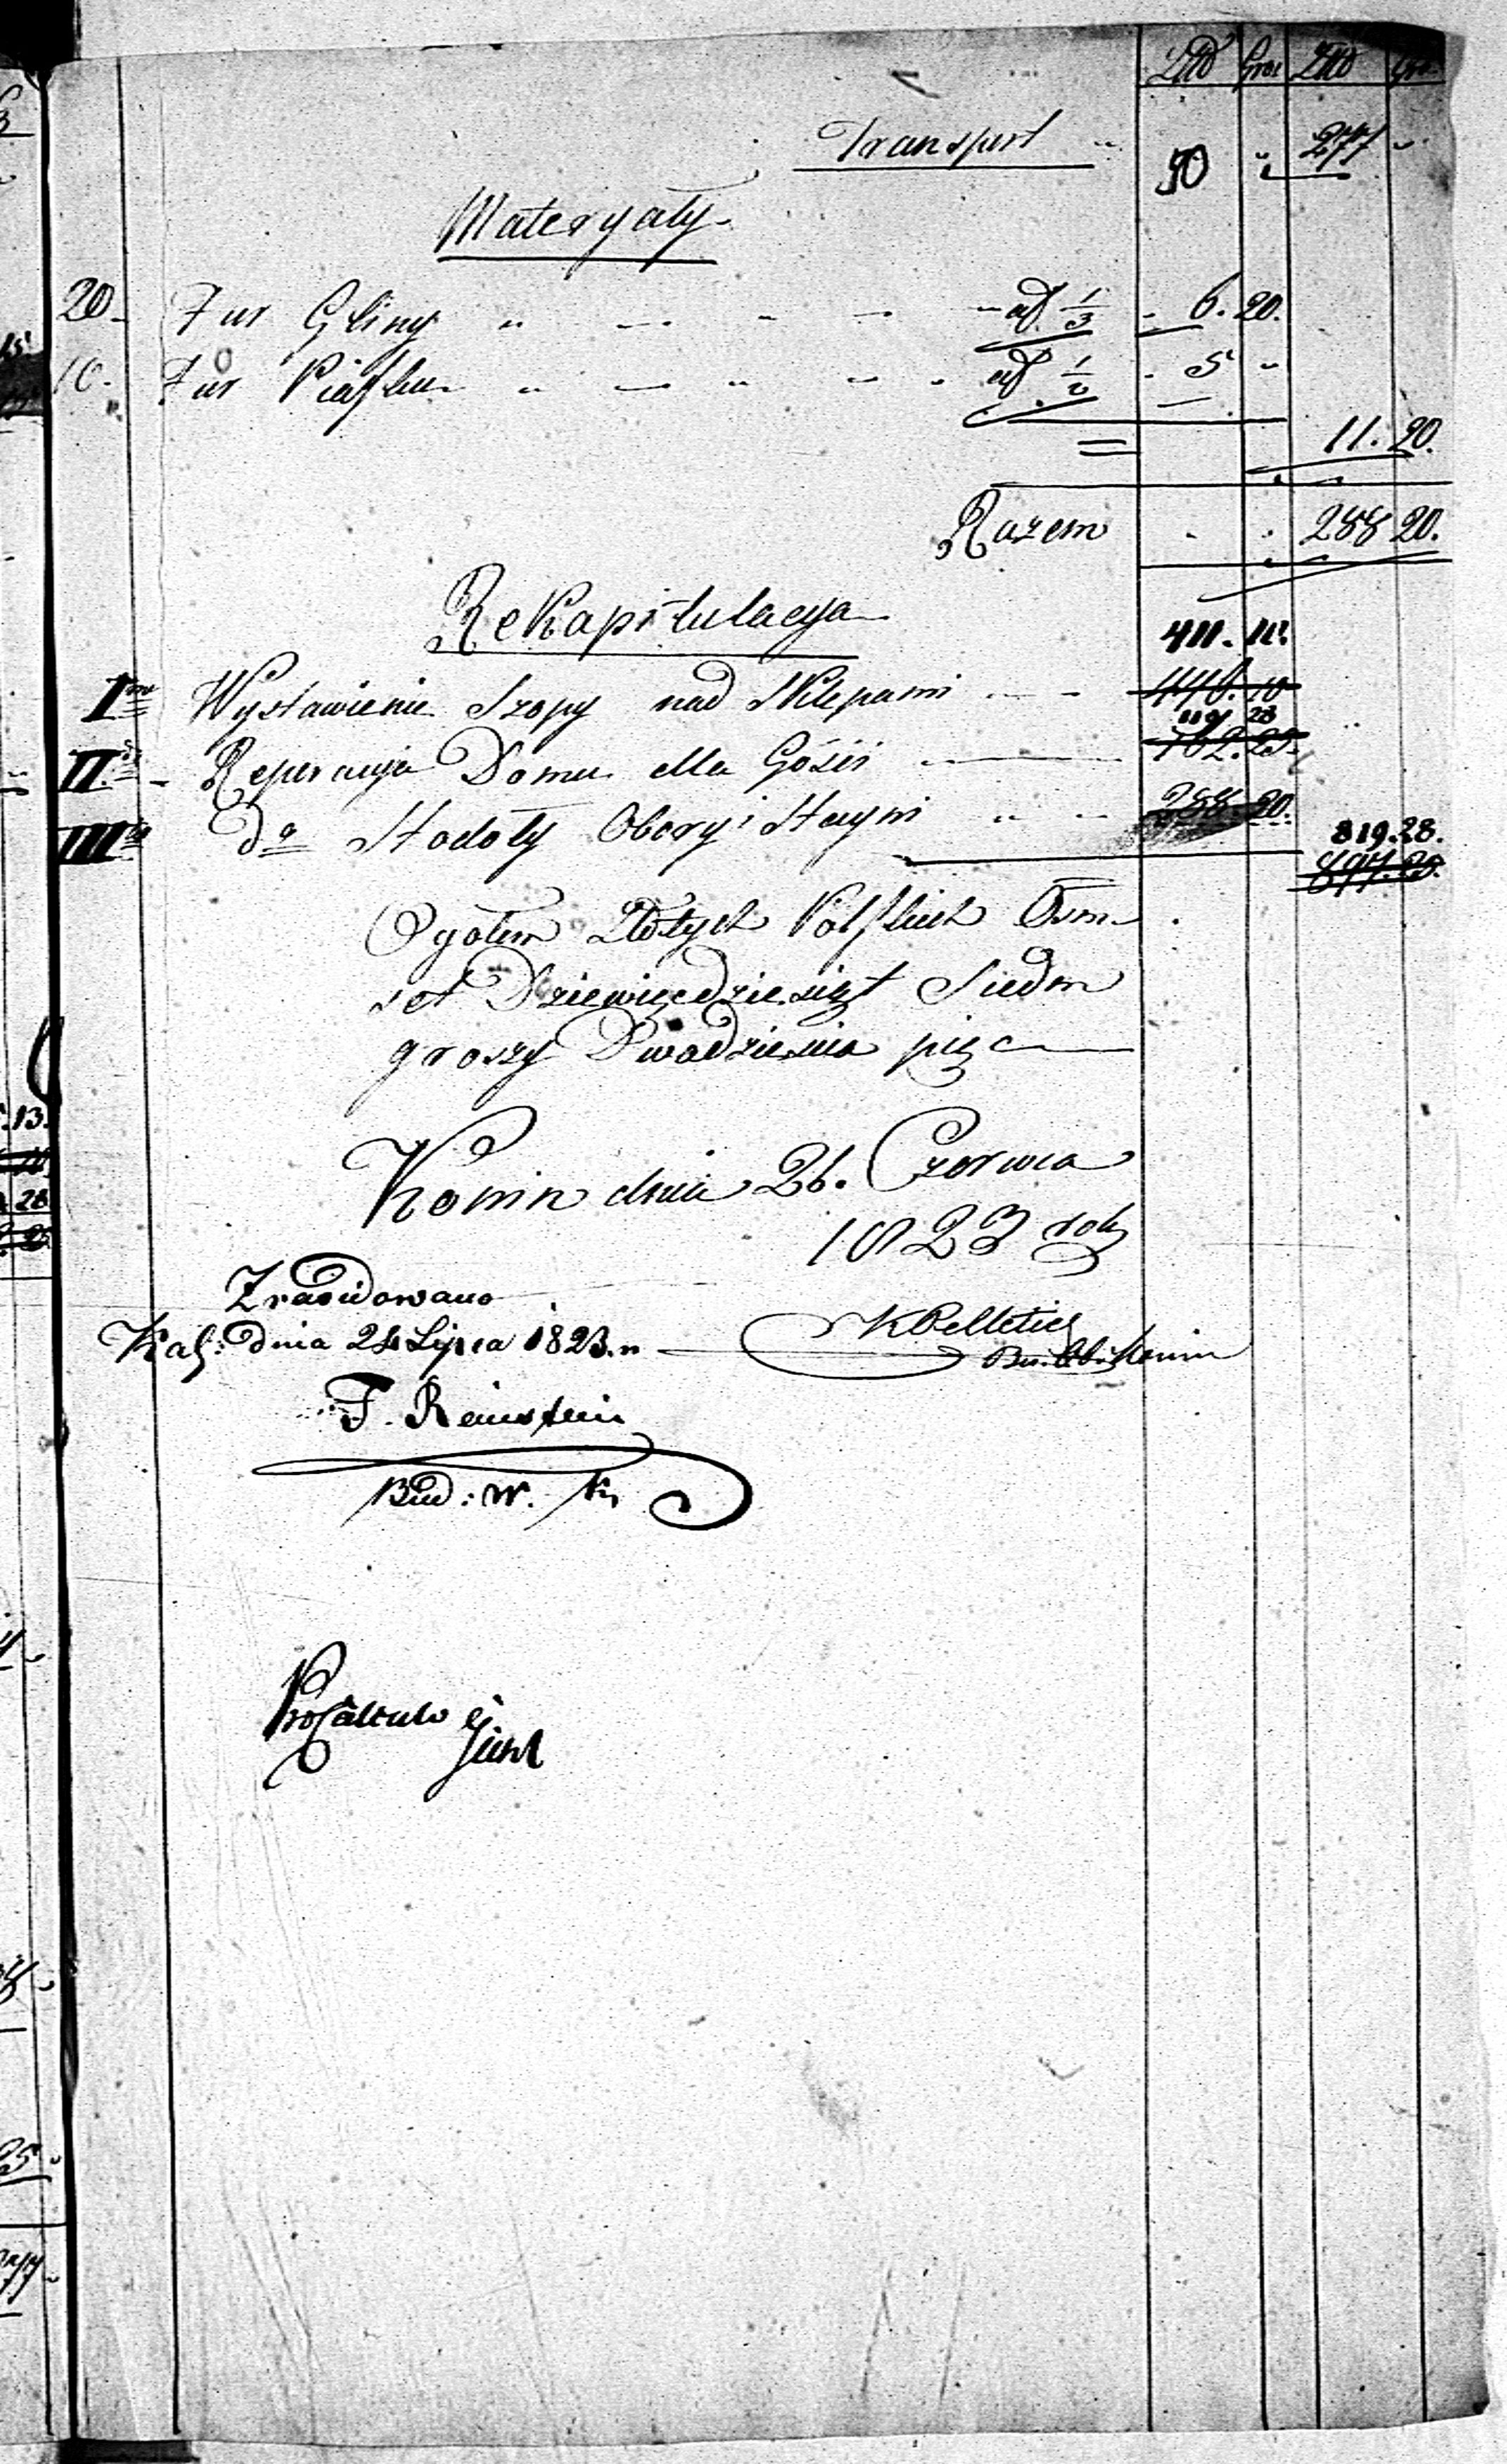 Złł Gro: Złł Gro.
Transport 50 „ 277 „
Materyały
20. Fur Gliny „ — „ — ad 1/3 . 6. 20.
10. Fur Piasku „ — „ — ad 1/2 . 5 „
= 11. 20.
Razem . . 288 20.
Rekapitulacya
411.
I Wystawienie Szopy nad Sklepami — 446. 10
119 23
II Reperacyja Domu dla Gości — 162. 25.
III do Stodoły Obory i Stayni „ „ 288. 20.
819. 28.
897. 25.
Ogołem Złotych Polskich Osm
set Dziewięćdziesiąt Siedm
groszy Dwadzieścia pięć
Konin dnia 26. Czerwca
1823 roku
Zrewidowano
Kal: dnia 24 Lipca 1823. r.
Bu: Ob: Konin
F. Reinstein
Bud: W.
Pro Calculo